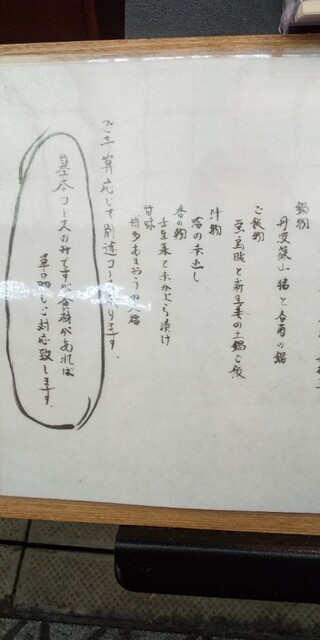 鍋物
丹波篠山 猪と春菊の鍋
ご飯物
蛍烏賊と新生姜の土鍋ご飯
汁物
赤出し
香の物
壬生菜と赤かぶら漬け
甘味
博多あまおうの
ご予算応じて別途コース
ります。
基本コースのみですが食材があれば
単品でもご対応致します。